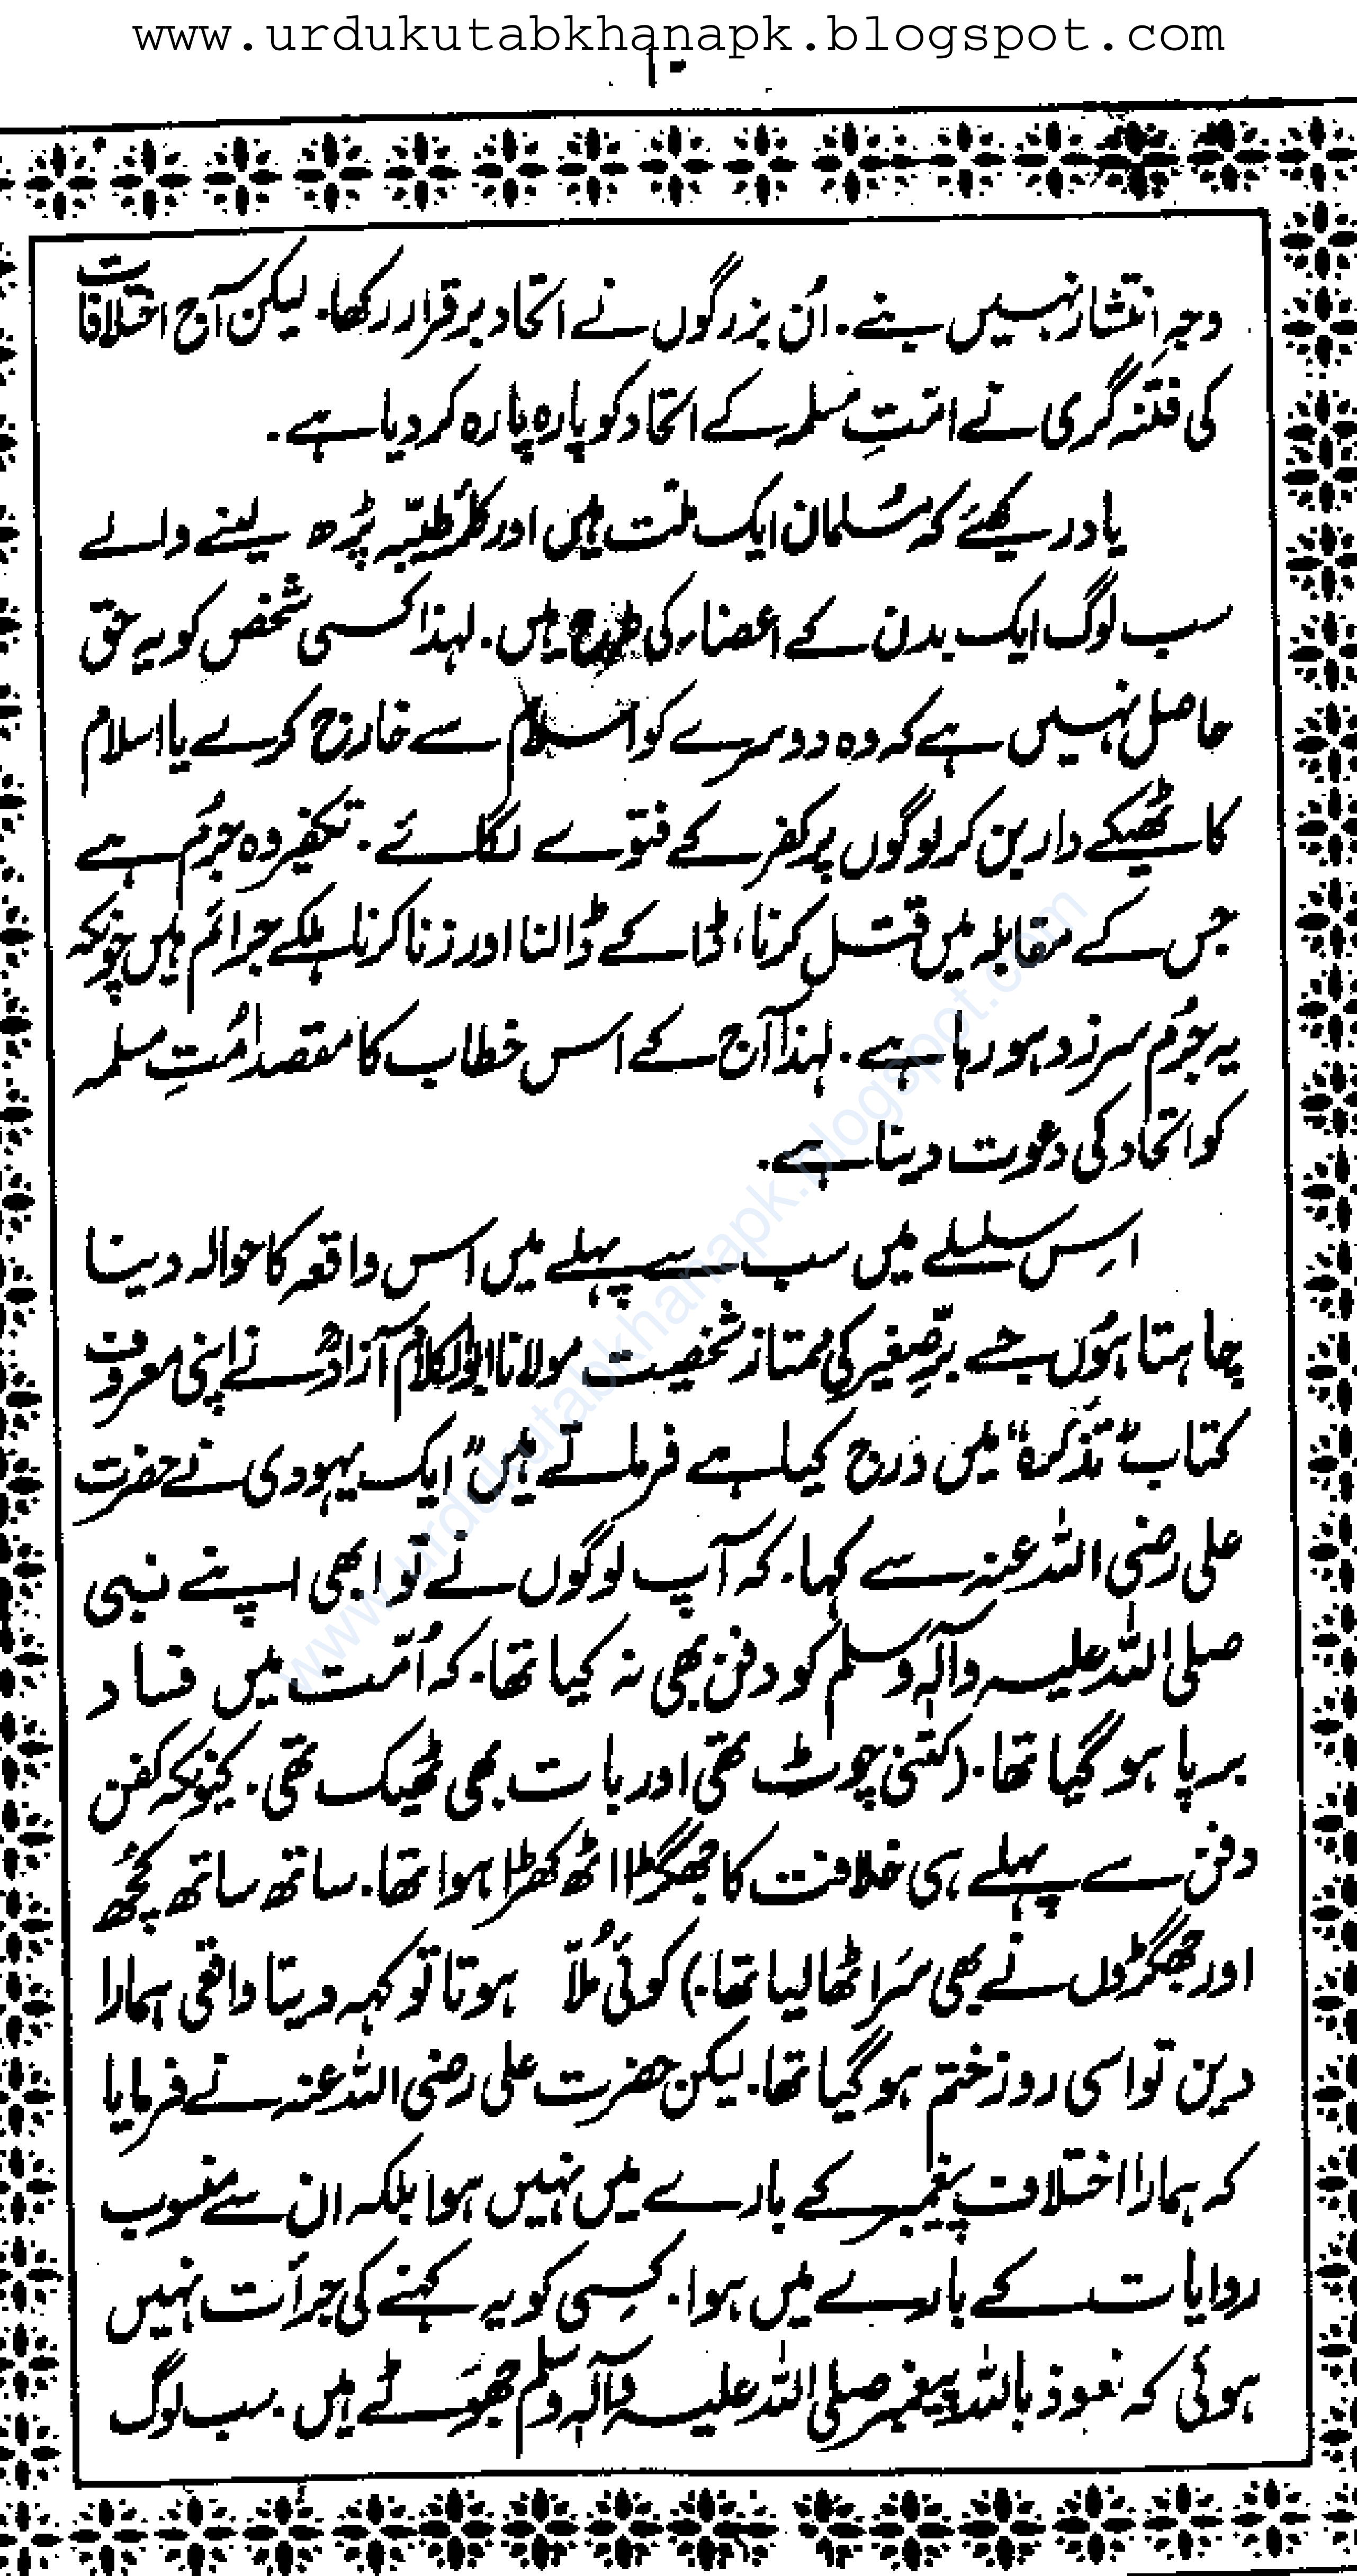 www.urdukutabkhanapk.blogspot.com
۱۰
وجہِ انتشار نہیں بنے۔ اُن بزرگوں نے اتحاد برقرار رکھا۔ لیکن آج اختلافات
کی فتنہ گری نے امتِ مسلمہ کے اتحاد کو پارہ پارہ کر دیا ہے۔
یاد رکھیئے کہ مُسلمان ایک ملت ہیں اور کلمۂ طیبّہ پڑھ لینے والے
سب لوگ ایک بدن کے اعضاء کی طرح ہیں۔ لہذا کسی شخص کو یہ حق
حاصل نہیں ہے کہ وہ دوسرے کو اسلام سے خارج کرے یا اسلام
کا ٹھیکے دار بن کر لوگوں پر کفر کے فتوے لگائے۔ تکفیر وہ جرُم ہے
جس کے مقابلہ میں قتل کرنا، ڈاکے ڈالنا اور زنا کرنا ہلکے جرائم ہیں چونکہ
یہ جرُم سرزد ہو رہا ہے۔ لہذا آج کے اس خطاب کا مقصد اُمتِ مسلمہ
کو اتحاد کی دعوت دینا ہے۔
اس سلسلے میں سب سے پہلے میں اس واقعہ کا حوالہ دینا
چاہتا ہوُں جسے برِّصغیر کی ممتاز شخصیت مولانا ابوالکلام آزادؒ نے اپنی معروف
کتاب "تذکرہ" میں درج کیا ہے فرماتے ہیں "ایک یہودی نے حضرت
علی رضی اللہ عنہ سے کہا۔ کہ آپ لوگوں نے تو ابھی اپنے نبی
صلی اللہ علیہ وآلہٖ وسلم کو دفن بھی نہ کیا تھا۔ کہ اُمّت میں فساد
برپا ہو گیا تھا۔ (کتنی چوٹ تھی اور بات بھی ٹھیک تھی۔ کیونکہ کفن
دفن سے پہلے ہی خلافت کا جھگڑا اٹھ کھڑا ہوا تھا۔ ساتھ ساتھ کچُھ
اور جھگڑوں نے بھی سَر اٹھا لیا تھا۔) کوئی مُلاّ ہوتا تو کہہ دیتا واقعی ہمارا
دین تو اسی روز ختم ہو گیا تھا۔ لیکن حضرت علی رضی اللہ عنہ نے فرمایا
کہ ہمارا اختلاف پیغمبر کے بارے میں نہیں ہوا بلکہ ان سے منسوب
روایات کے بارے میں ہوا۔ کسِی کو یہ کہنے کی جرأت نہیں
ہوئی کہ نعوذ باللہ پیغمبر صلی اللہ علیہ وآلہٖ وسلم جھوَٹے ہیں۔ سب لوگ
www.urdukutabkhanapk.blogspot.com